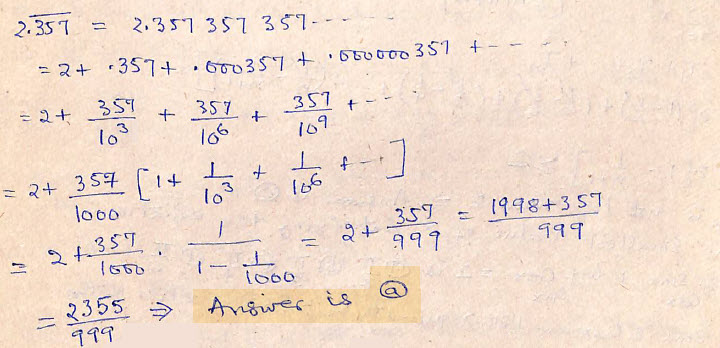 2.357̅ = 2.357 357 357-----
= 2 + .357 + .000357 + .000000357 + - - -
= 2 + 357/10³ + 357/10⁶ + 357/10⁹ + - - -
= 2 + 357/1000 [1 + 1/10³ + 1/10⁶ + - -]
= 2 + 357/1000 . 1/(1 - 1/1000) = 2 + 357/999 = (1998+357)/999
= 2355/999 ⇒ Answer is ⓐ